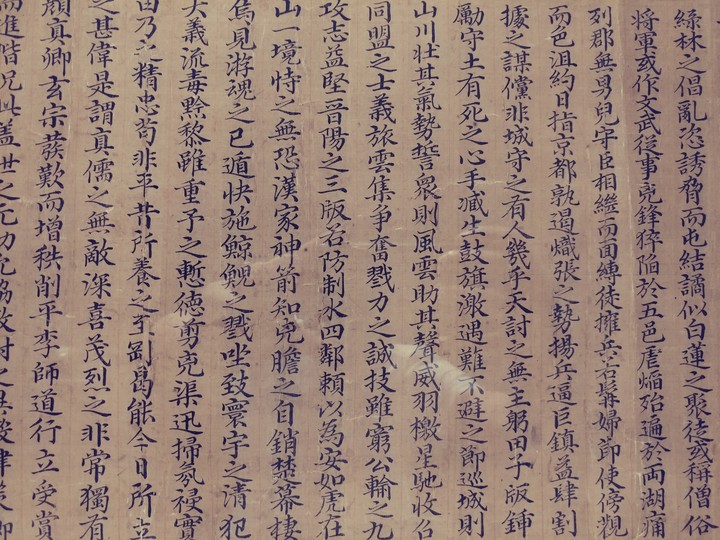 綠林之倡亂恣誘脅而屯結譎似白蓮之聚徒或稱僧俗
將軍或作文武從事兇鋒猝陷於五邑虐焰殆遍於兩湖痛
列郡無男兒守臣相繼而面縛徒擁兵若髯婦節使傍觀
而色沮約日指京都孰遏熾張之勢揚兵逼巨鎮益肆割
據之謀儻非城守之有人幾乎天討之無主躬田子版鍤
勵守土有死之心手臧生鼓旗激遇難不避之節巡城則
山川壯其氣勢誓衆則風雲助其聲威羽檄星馳收召
同盟之士義旅雲集爭奮戮力之誠技雖窮公輪之九
攻志益堅晉陽之三版名防制水四鄰賴以為安如虎在
山一境恃之無恐漢家神箭知兇膽之自銷楚幕棲
烏見游魂之已遁快施鯨鯢之戮坐致寰宇之清犯
大義流毒黔黎雖重予之慙德剪兇渠迅掃氛祲實
由乃之精忠苟非平昔所養之剛曷能今日所立
之甚偉是謂真儒之無敵深喜茂烈之非常獨有
顏真卿玄宗發歎而增秩削平李師道行立受賞
而進階況此蓋世之元功